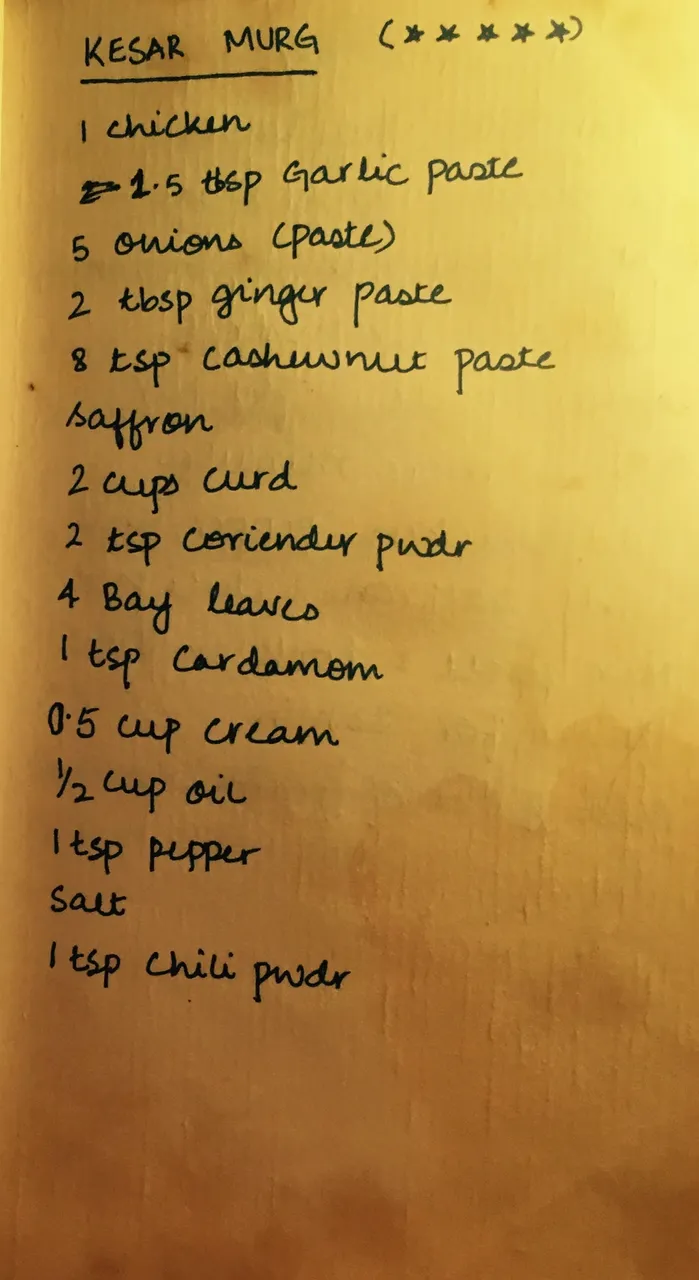 KESAR MURG (★★★★★)
1 chicken
1.5 tbsp Garlic paste
5 onions (paste)
2 tbsp ginger paste
8 tsp cashewnut paste
saffron
2 cups curd
2 tsp coriender pwdr
4 Bay leaves
1 tsp cardamom
0.5 cup cream
1/2 cup oil
1 tsp pepper
salt
1 tsp chili pwdr